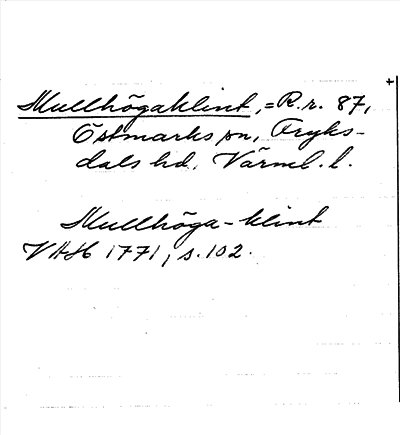 Mullhögaklint, = R.r. 87,
Östmarks sn, Fryks-
dals hd, Värml. l.
Mullhöga-klint
VAH 1771, s. 102.